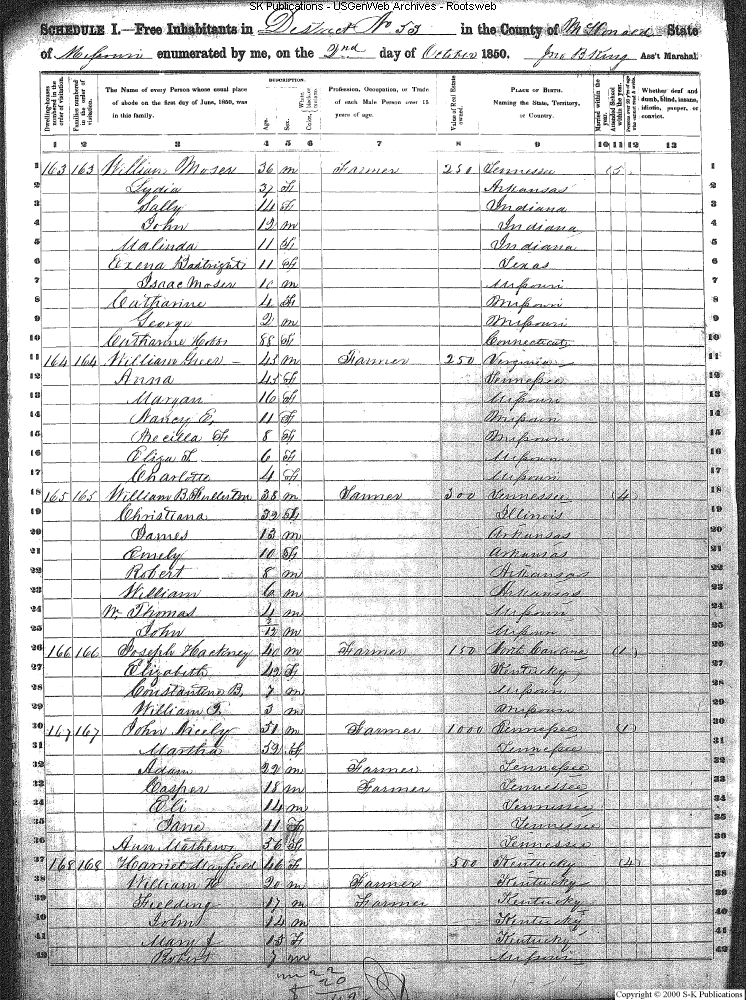 SK Publications - USGenWeb Archives - Rootsweb
SCHEDULE I.—Free Inhabitants in District No 53 in the County of McDonald State
of Missouri enumerated by me, on the 2nd day of October 1850. Jno B King Ass't Marshal.
Dwelling-houses numbered in the order of visitation.
Families numbered in the order of visitation.
The Name of every Person whose usual place of abode on the first day of June, 1850, was in this family.
DESCRIPTION.
Age.
Sex.
Color, White, black, or mulatto.
Profession, Occupation, or Trade of each Male Person over 15 years of age.
Value of Real Estate owned.
PLACE OF BIRTH. Naming the State, Territory, or Country.
Married within the year.
Attended School within the year.
Persons over 20 y'rs of age who cannot read & write.
Whether deaf and dumb, blind, insane, idiotic, pauper, or convict.
1 2 3 4 5 6 7 8 9 10 11 12 13
1 163 163 William Moser 36 m Farmer 250 Tennessee (5) 1
2 Lydia 37 F Arkansas 2
3 Sally 14 F Indiana 3
4 John 12 m Indiana 4
5 Malinda 11 F Indiana 5
6 Exena 11 F Texas 6
7 Isaac Moser 10 m Missouri 7
8 Catharine 4 F Missouri 8
9 George 2 m Missouri 9
10 Catharine Hobbs 88 F Connecticut 10
11 164 164 William Greer 45 m Farmer 250 Virginia 11
12 Anna 45 F Tennessee 12
13 Margan 16 F Missouri 13
14 Nancy E. 11 F Missouri 14
15 F 8 F Missouri 15
16 Eliza 6 F Missouri 16
17 Charlotte 4 F Missouri 17
18 165 165 William B Fullerton 38 m Farmer 300 Tennessee (4) 18
19 Christiana 32 F Illinois 19
20 James 13 m Arkansas 20
21 Emely 10 F Arkansas 21
22 Robert 8 m Arkansas 22
23 William 6 m Arkansas 23
24 W. Thomas 4 m Missouri 24
25 John 12 m Missouri 25
26 166 166 Joseph Hackney 40 m Farmer 150 North Carolina (1) 26
27 Elizabeth 42 F Kentucky 27
28 Constantine B. 7 m Missouri 28
29 William 3 m Missouri 29
30 167 167 John Nicely 51 m Farmer 1000 Tennessee (1) 30
31 Martha 52 F Tennessee 31
32 Adam 22 m Farmer Tennessee 32
33 Casper 18 m Farmer Tennessee 33
34 Eli 14 m Tennessee 34
35 Jane 11 F Tennessee 35
36 Ann Mathews 56 F Tennessee 36
37 168 168 Harriot Mayfield 46 F 500 Kentucky (4) 37
38 William 20 m Farmer Kentucky 38
39 Fielding 17 m Farmer Kentucky 39
40 John 14 m Kentucky 40
41 Mary J 13 F Kentucky 41
42 Robert 7 m Missouri 42
m 22
F 20
Copyright © 2000 S-K Publications